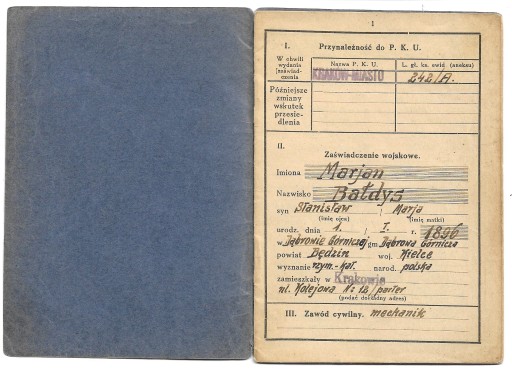 1
I. Przynależność do P. K. U.
W chwili wydania zaświadczenia
Nazwa P. K. U.
L. gł. ks. ewid (aneksu)
KRAKÓW-MIASTO
242/A.
Późniejsze
zmiany
wskutek
przesie-
dlenia
II.
Zaświadczenie wojskowe.
Imiona Marjan
Nazwisko Bałdys
syn Stanisław i Marja
(imię ojca) (imię matki)
urodz. dnia 1. I. r. 1896
w Dąbrowie Górniczej gm Dąbrowa Górnicza
powiat Będzin woj. Kielce
wyznanie rzym.-kat. narod. polska
zamieszkały w Krakowie
ul. Kolejowa No 18 / parter
(podać dokładny adres)
III. Zawód cywilny. mechanik